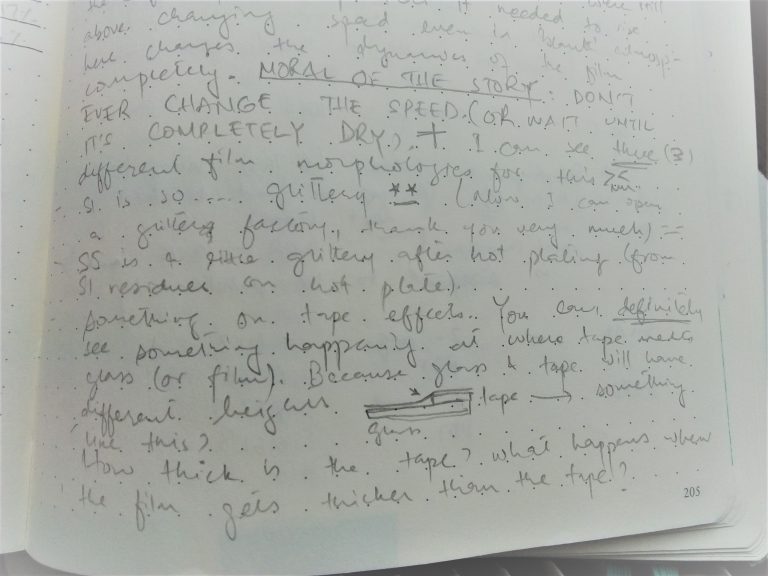 it needed to
above changing speed even in blank
here changes the dynamics of the film
completely. MORAL OF THE STORY: DON'T
EVER CHANGE THE SPEED. (OR WAIT UNTIL
IT'S COMPLETELY DRY) + I can see three (3)
different film morphologies for this
SI is so .... glittery ** (Now I can open
a glitter factory, thank you very much) =
- SS is a little glittery after hot plating (from
SI residues on hot plate).
something on tape effects.. You can definitely
see something happening at where tape meets
glass (or film). Because glass & tape will have
different heights tape → something
glass
like this?
How thick is the tape? What happens when
the film gets thicker than the tape?
205